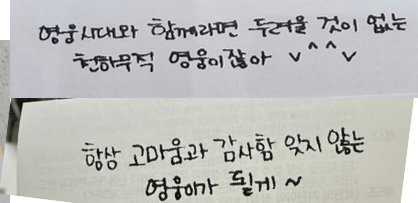 영웅시대와 함께라면 두려울 것이 없는
천하무적 영웅이잖아 v^^v
항상 고마움과 감사함 잊지 않는
영웅이가 될게~